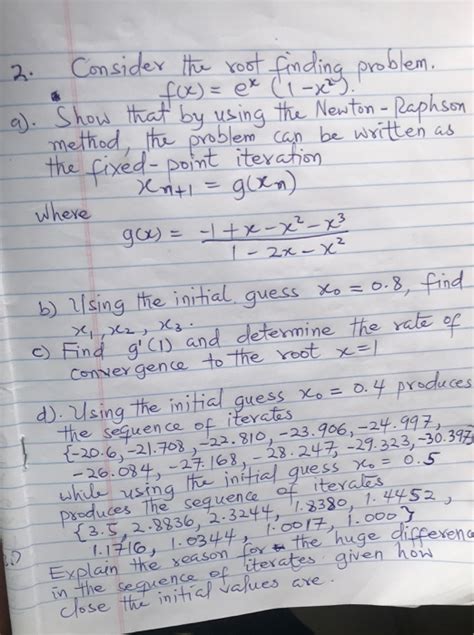 2. Consider the root finding problem.
f(x) = e^x (1-x²).
a). Show that by using the Newton-Raphson
method, the problem can be written as
the fixed-point iteration
x_{n+1} = g(x_n)
where
g(x) = \frac{-1+x-x²-x³}{1-2x-x²}
b) Using the initial guess x₀ = 0.8, find
x₁, x₂, x₃.
c) Find g'(1) and determine the rate of
convergence to the root x=1
d). Using the initial guess x₀ = 0.4 produces
the sequence of iterates
{-20.6, -21.708, -22.810, -23.906, -24.997,
-26.084, -27.168, -28.247, -29.323, -30.397}
while using the initial guess x₀ = 0.5
produces the sequence of iterates
{3.5, 2.8836, 2.3244, 1.8380, 1.4452,
1.1716, 1.0344, 1.0017, 1.000}
Explain the reason for the huge difference
in the sequence of iterates given how
close the initial values are.